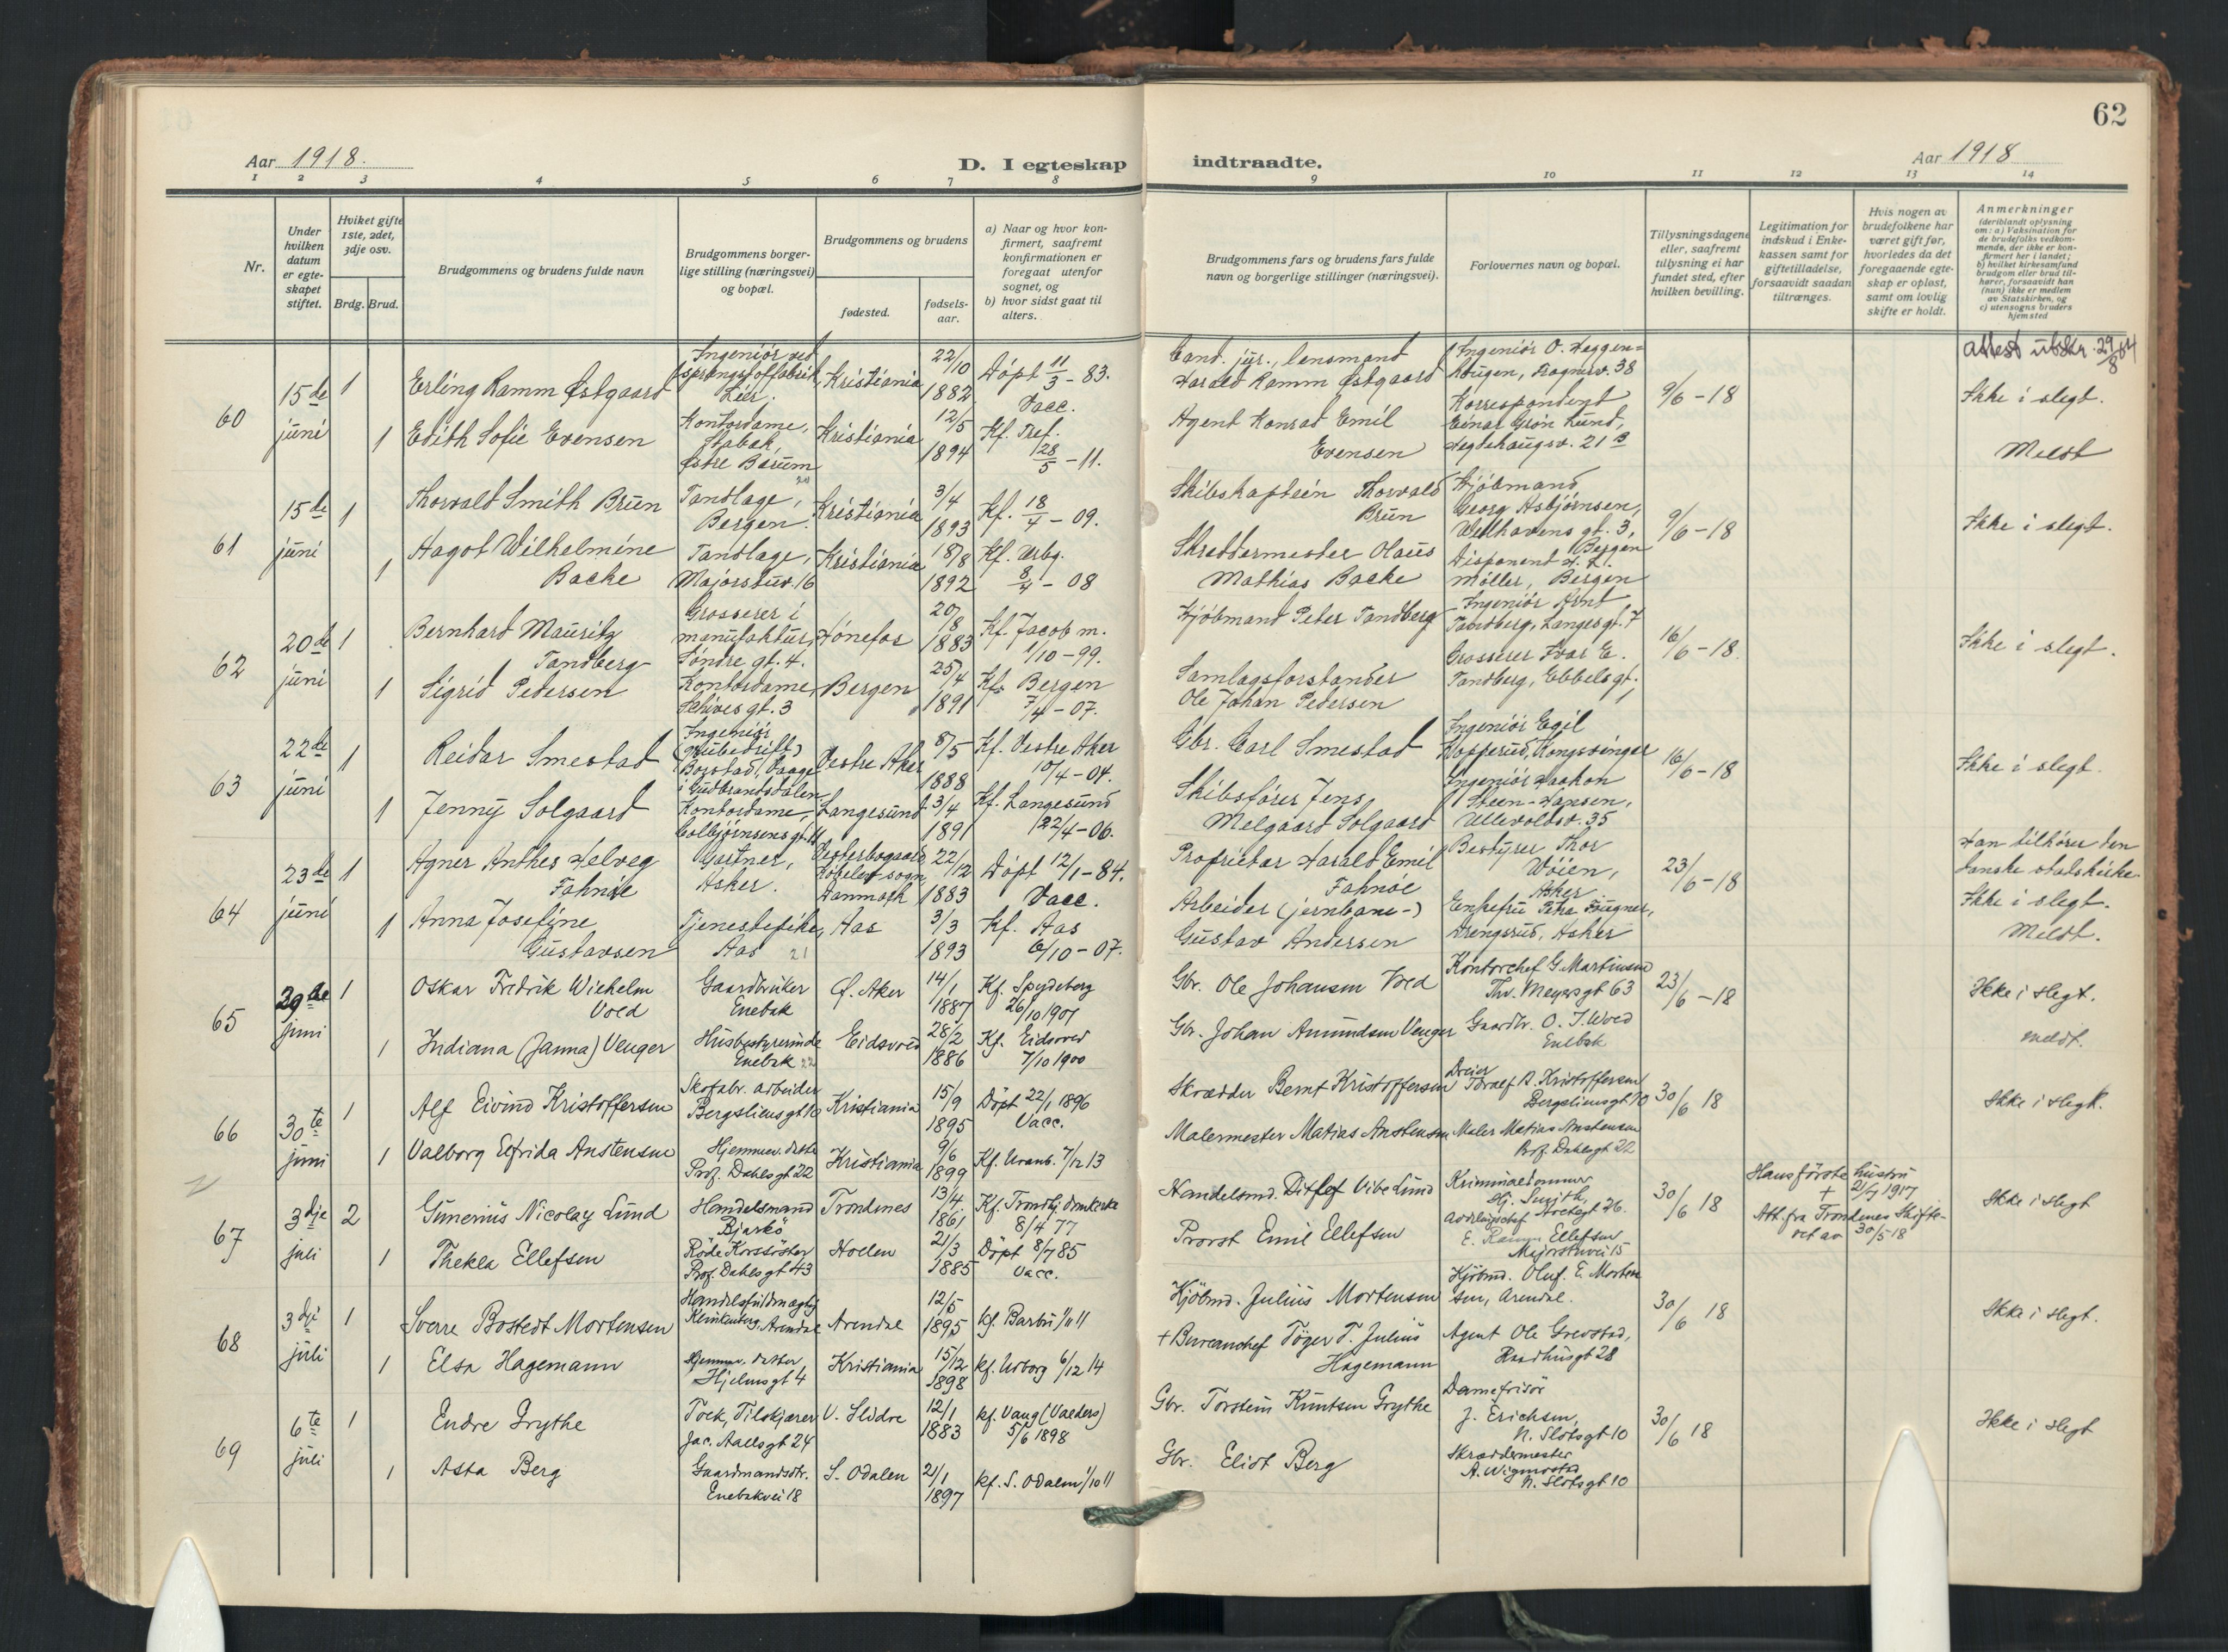 62
Aar 1918.
D. I egteskap indtraadte.
Aar 1918
1 2 3 4 5 6 7 8 9 10 11 12 13 14
Nr.
Under hvilken datum er egteskapet stiftet.
Hvilket gifte 1ste, 2det, 3dje osv.
Brdg. Brud.
Brudgommens og brudens fulde navn
Brudgommens borgerlige stilling (næringsvei) og bopæl.
Brudgommens og brudens
fødested.
fødselsaar.
a) Naar og hvor konfirmert, saafremt konfirmationen er foregaat utenfor sognet, og
b) hvor sidst gaat til alters.
Brudgommens fars og brudens fars fulde navn og borgerlige stillinger (næringsvei).
Forlovernes navn og bopæl.
Tillysningsdagene eller, saafremt tillysning ei har fundet sted, efter hvilken bevilling.
Legitimation for indskud i Enkekassen samt for giftetilladelse, forsaavidt saadan tiltrænges.
Hvis nogen av brudefolkene har været gift før, hvorledes da det foregaaende egteskap er opløst, samt om lovlig skifte er holdt.
Anmerkninger
(deriblandt oplysning om: a) Vaksination for de brudefolks vedkommende, der ikke er konfirmert her i landet; b) hvilket kirkesamfund brudgom eller brud tilhører, forsaavidt han (hun) ikke er medlem av Statskirken, og c) utensogns bruders hjemsted
60
15de juni
1
Erling Ramm Østgaard
Ingeniør ved sprængstoffabrik, Lier.
Kristiania
22/10 1882
Døpt 11/3 - 83. Vacc.
Cand. jur., lensmand Harald Ramm Østgaard
Ingeniør O. Heggenhougen, Dragnsv. 38
9/6 - 18
attest utskr. 29/8 64
Ikke i slegt.
1
Edith Sofie Evensen
Kontordame, Stabek, Østre Bærum
Kristiania
12/5 1894
Kf. Tref. 28/5 - 11.
Agent Konrad Emil Evensen
Korrespondent Einar Grøn Lund, Hegdehaugsv. 21 B
Meldt
61
15de juni
1
Thorvald Smith Brun
Tandlæge, Bergen.
Kristiania
3/4 1893
Kf. 18/4 - 09.
Skibskaptein Thorvald Brun
Kjøbmand Georg Asbjørnsen, Welhavens gt. 3, Bergen
9/6 - 18
Ikke i slegt.
1
Hagot Wilhelmine Backe
Tandlæge, Majorstuv. 16
Kristiania
18/8 1892
Kf. Urbg. 8/4 - 08
Skreddermester Olaus Mathias Backe
Disponent H. L. Møller, Bergen
62
20de juni
1
Bernhard Mauritz Tandberg
Grosserer i manufaktur, Søndre gt. 4.
Hønefos
20/8 1883
Kf. Jacob m. 1/10 - 99.
Kjøbmand Peter Tandberg
Ingeniør Arnt Tandberg, Langes gt. 7
16/6 - 18.
Ikke i slegt.
1
Sigrid Pedersen
Kontordame, Schives gt. 3
Bergen
25/4 1891
Kf. Bergen 7/4 - 07.
Samlagsforstander Ole Johan Pedersen
Grosserer Ivar E. Tandberg, Ebbels gt. 1
63
22de juni
1
Reidar Smestad
Ingeniør (grubedrift) Borstad, Vaage i Gudbrandsdalen
Vestre Aker
8/5 1888
Kf. Vestre Aker 10/4 - 04.
Gbr. Carl Smestad
Ingeniør Egil Kopperud, Kongsvinger
16/6 - 18
Ikke i slegt.
1
Jenny Solgaard
Kontordame, Colbjørnsens gt. 11
Langesund
13/4 1891
Kf. Langesund 22/4 - 06.
Skibsfører Jens Melgaard Solgaard
Ingeniør Haakon Steen-Hansen, Ullevoldsv. 35
64
23de juni
1
Agner Anthes Helveg Fahnøe
Gartner, Asker.
Vesterbogaard sogn Danmark
22/12 1883
Døpt 12/1 - 84. Vacc.
Proprietær Harald Emil Fahnøe
Bestyrer Thor Wøien, Asker
23/6 - 18
Han tilhører den danske statskirke.
Ikke i slegt.
1
Anna Josefine Gustavsen
Tjenestepike, Aas 21
Aas
3/3 1893
Kf. Aas 6/10 - 07.
Arbeider (jernbane-) Gustav Andersen
Enkefru Petra Fougner, Drengsrud, Asker
Meldt.
65
29de juni
1
Oskar Fredrik Wilhelm Vold
Gaardbruker Enebak
Ø. Aker
14/1 1887
Kf. Spydeberg 26/10 1901
Gbr. Ole Johansen Vold
Kontorchef G. Martinsen Thv. Meyers gt 63
23/6 - 18
Ikke i slegt.
1
Indiana (Janna) Venger
Husbestyrerinde Enebak 22
Eidsvold
28/2 1886
Kf. Eidsvold 7/10 1900
Gbr. Johan Amundsen Venger
Gaardbr. O. J. Wold Enebak
meldt.
66
30te juni
1
Alf Eivind Kristoffersen
Skofabr. arbeider Bergsliensgt 10
Kristiania
15/9 1895
Døpt 22/1 1896 Vacc.
Skrædder Bernt Kristoffersen
Dreier Toralf B. Kristoffersen Bergsliensgt 10
30/6 18
Ikke i slegt.
1
Valborg Elfrida Anstensen
Hjemmev. datter Prof. Dahlsgt 22
Kristiania
9/6 1899
Kf. Uranb. 7/12 13
Malermester Matias Anstensen
Maler Matias Anstensen Prof. Dahlsgt 22
67
3dje juli
2
Gunerius Nicolay Lund
Handelsmand Bjarkö
Trondenes
13/4 1861
Kf. Trondhj. domkirke 8/4 77
Handelsmd. Ditlef Vibe Lund
Kriminaldommer Hj. Smith, Nockegt 26.
30/6 18
Hans første hustru + 2/7 1917
Att. fra Trondenes Skifteret av 30/5 18
Ikke i slegt
1
Thekla Ellefsen
Røde Korssøster Prof. Dahls gt 43
Holen
21/3 1885
Døpt 8/7 85 Vacc.
Provst Emil Ellefsen
Avdelingschef E. Ramm Ellefsen Majorstuvei 15
68
3dje juli
1
Sverre Bostedt Mortensen
Handelsfuldmægtig Klinkenberg, Arendal
Arendal
12/5 1895
kf Barbu 1/10 11
Kjöbmd. Julius Mortensen
Kjöbmd. Oluf. E. Mortensen, Arendal.
30/6 18
Ikke i slegt.
1
Elsa Hagemann
Hjemmev. datter Hjelmsgt 4
Kristiania
15/12 1898
kf. Urborg 6/12 14
+ Bureauchef Töger T. Julius Hagemann
Agent Ole Grevstad, Raadhusgt 28
69
6te juli
1
Endre Grythe
Tolk, Tilskjærer Jac. Aallsgt 24
V. Slidre
12/1 1883
kf. Vang (Valders) 5/6 1898
Gbr. Torstein Knutsen Grythe
Damefrisör J. Erichsen, N. Slotsgt 10
30/6 18
Ikke i slegt
1
Asta Berg
Gaardmandsdtr. Enebakvei 18
S. Odalen
21/1 1897
kf. S. Odalen 1/10 11
Gbr. Eliot Berg
Skræddermester A. Wigmostad N. Slotsgt 10